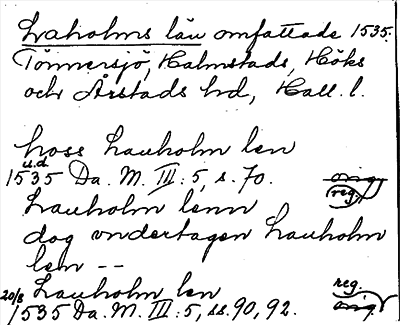 Laholms län omfattade 1535.
Tönnersjö, Halmstads, Höks
och Årstads hd, Hall. l.
hoss Lauholm len
u.d
1535 Da. M. III: 5, s. 70. orig.
(reg.)
Lauholm lenn
dog vndertagen Lauholm
len --
20/8 Lauholm len reg.
1535 Da. M. III: 5, ss. 90, 92. orig.